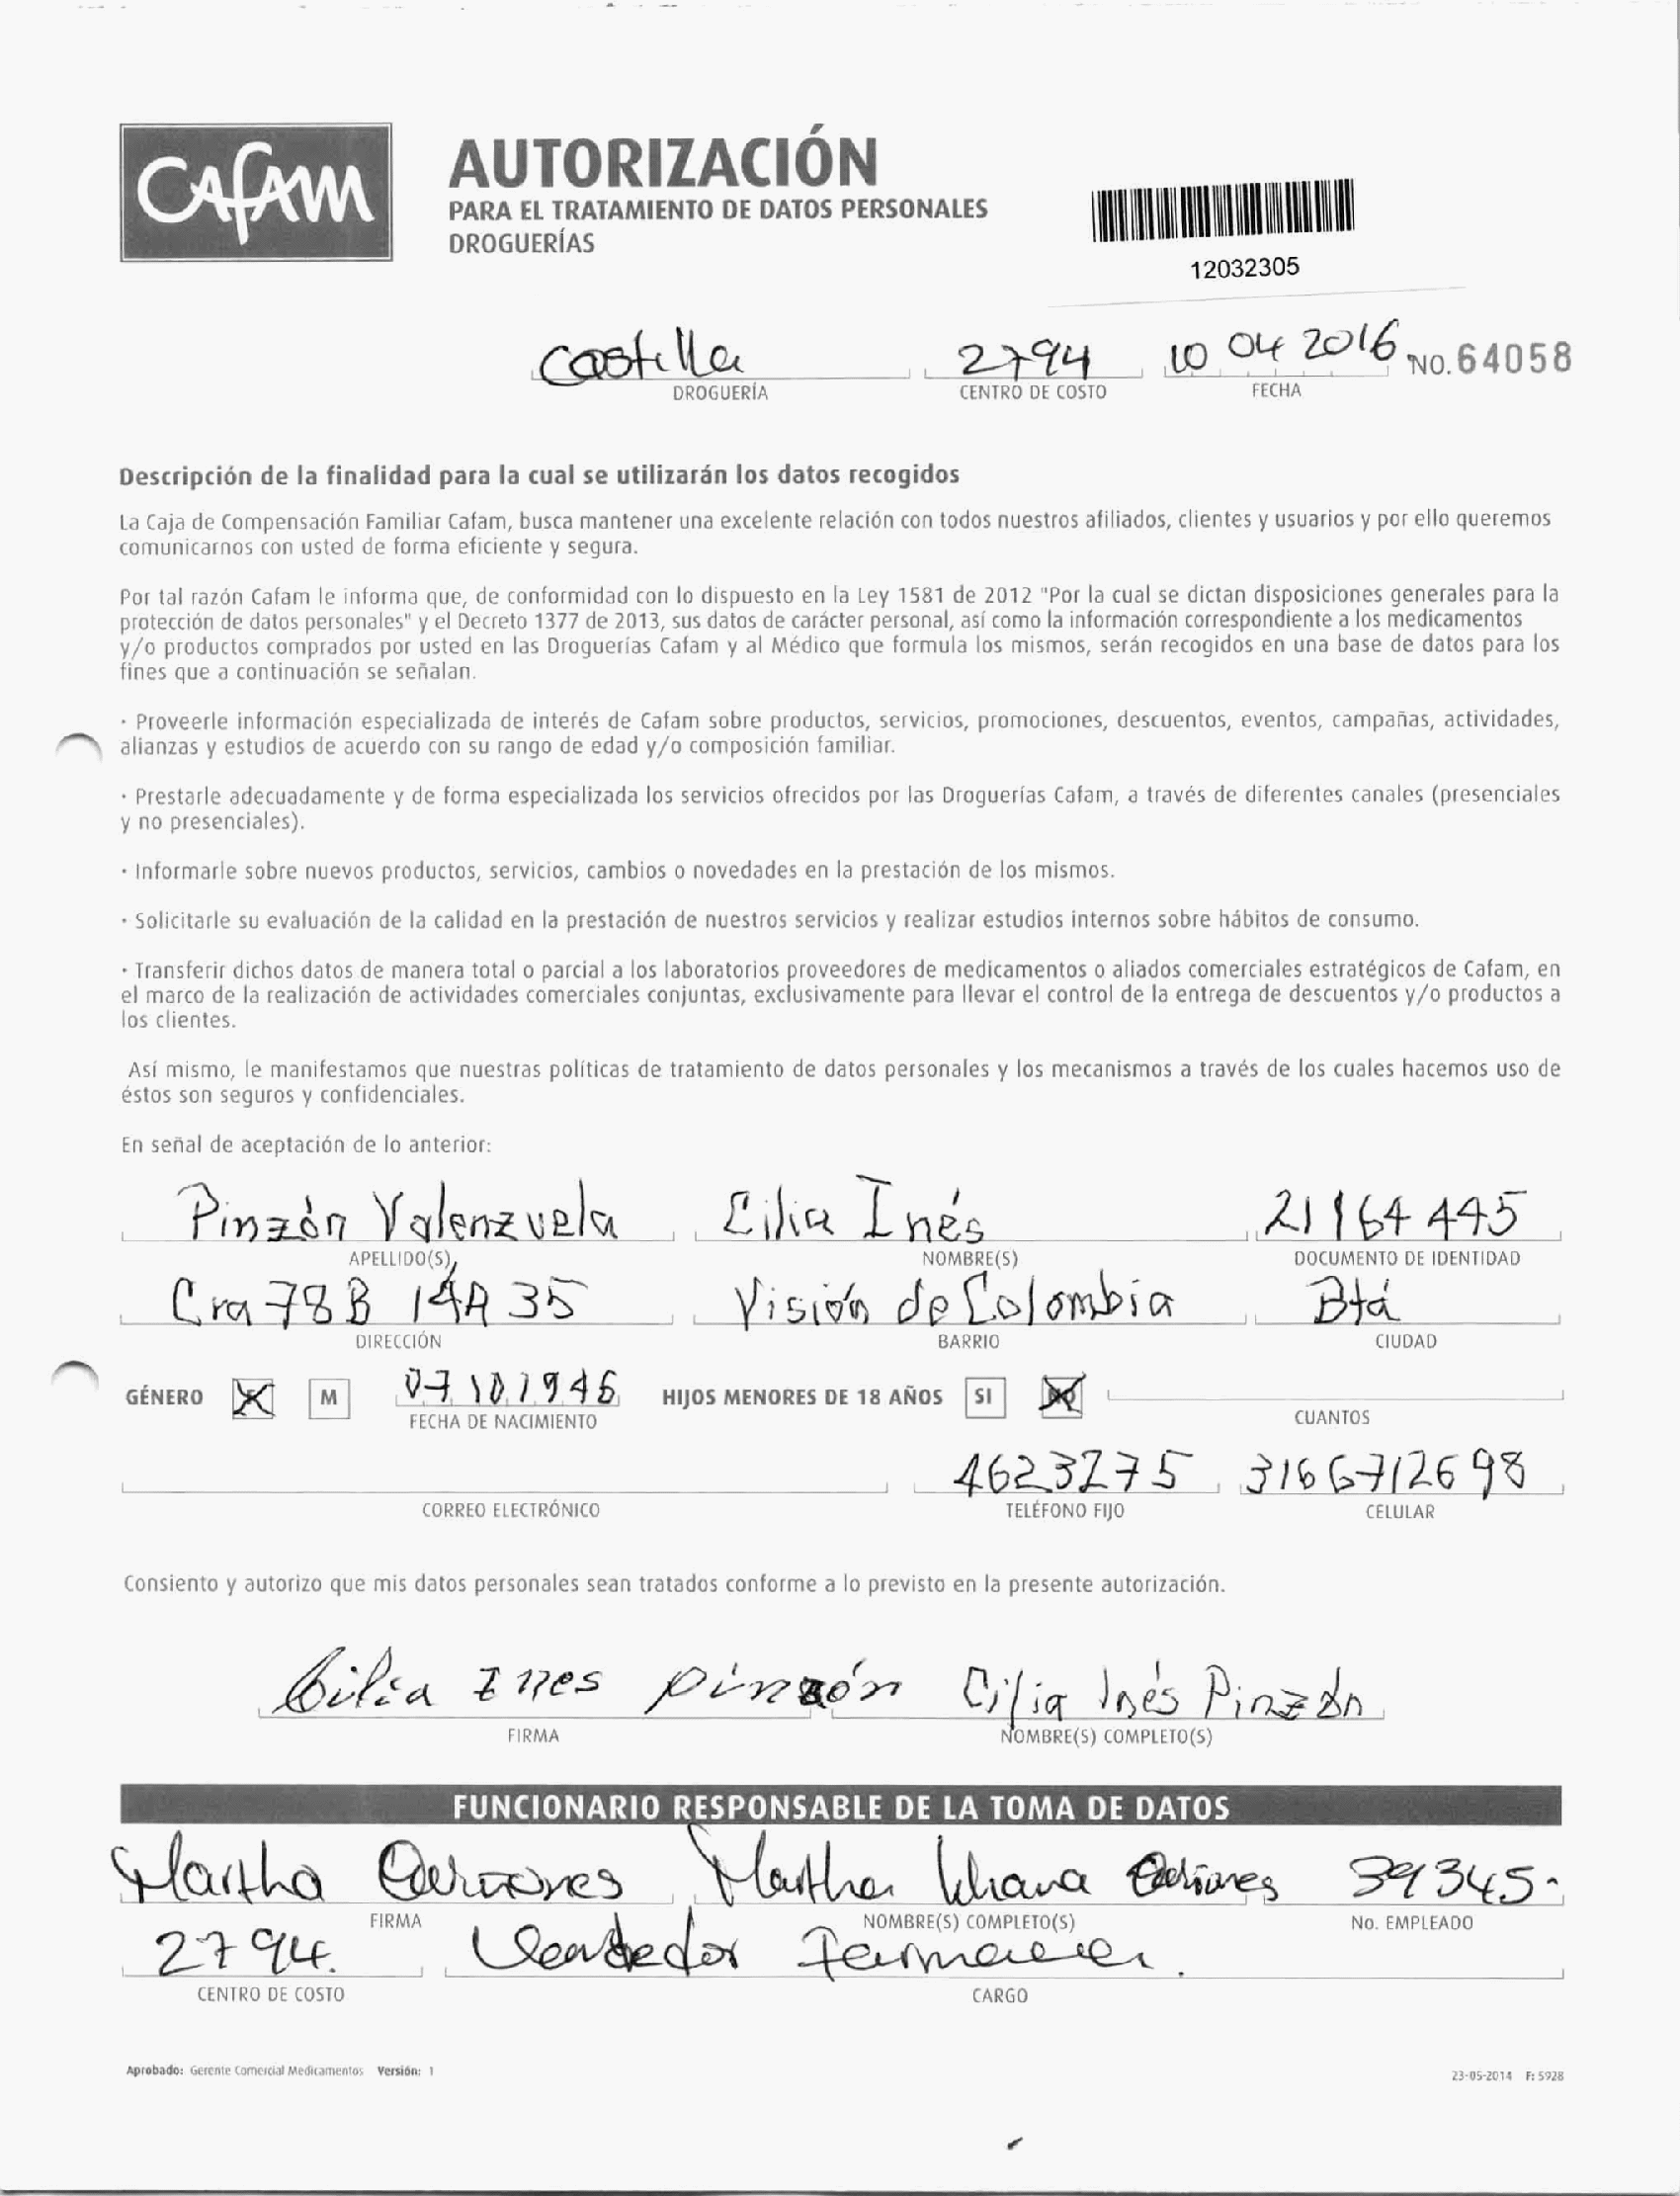 CAFAM
AUTORIZACIÓN
PARA EL TRATAMIENTO DE DATOS PERSONALES
DROGUERÍAS
12032305
Castilla 2794 10 04 2016 No. 64058
DROGUERÍA CENTRO DE COSTO FECHA
Descripción de la finalidad para la cual se utilizarán los datos recogidos
La Caja de Compensación Familiar Cafam, busca mantener una excelente relación con todos nuestros afiliados, clientes y usuarios y por ello queremos
comunicarnos con usted de forma eficiente y segura.
Por tal razón Cafam le informa que, de conformidad con lo dispuesto en la Ley 1581 de 2012 "Por la cual se dictan disposiciones generales para la
protección de datos personales" y el Decreto 1377 de 2013, sus datos de carácter personal, así como la información correspondiente a los medicamentos
y/o productos comprados por usted en las Droguerías Cafam y al Médico que formula los mismos, serán recogidos en una base de datos para los
fines que a continuación se señalan.
· Proveerle información especializada de interés de Cafam sobre productos, servicios, promociones, descuentos, eventos, campañas, actividades,
alianzas y estudios de acuerdo con su rango de edad y/o composición familiar.
· Prestarle adecuadamente y de forma especializada los servicios ofrecidos por las Droguerías Cafam, a través de diferentes canales (presenciales
y no presenciales).
· Informarle sobre nuevos productos, servicios, cambios o novedades en la prestación de los mismos.
· Solicitarle su evaluación de la calidad en la prestación de nuestros servicios y realizar estudios internos sobre hábitos de consumo.
· Transferir dichos datos de manera total o parcial a los laboratorios proveedores de medicamentos o aliados comerciales estratégicos de Cafam, en
el marco de la realización de actividades comerciales conjuntas, exclusivamente para llevar el control de la entrega de descuentos y/o productos a
los clientes.
Así mismo, le manifestamos que nuestras políticas de tratamiento de datos personales y los mecanismos a través de los cuales hacemos uso de
éstos son seguros y confidenciales.
En señal de aceptación de lo anterior:
Pinzón Valenzuela Cilia Inés 21164445
APELLIDO(S) NOMBRE(S) DOCUMENTO DE IDENTIDAD
Cra 78B 14A 35 Visión de Colombia Btá
DIRECCIÓN BARRIO CIUDAD
GÉNERO M 07 10 1946 HIJOS MENORES DE 18 AÑOS SI
FECHA DE NACIMIENTO CUANTOS
4623275 3166712698
CORREO ELECTRÓNICO TELÉFONO FIJO CELULAR
Consiento y autorizo que mis datos personales sean tratados conforme a lo previsto en la presente autorización.
Cilia Ines pinzón Cilia Inés Pinzón
FIRMA NOMBRE(S) COMPLETO(S)
FUNCIONARIO RESPONSABLE DE LA TOMA DE DATOS
Martha Martha Liliana 39345.
FIRMA NOMBRE(S) COMPLETO(S) No. EMPLEADO
2794. Vendedor
CENTRO DE COSTO CARGO
Aprobado: Gerente Comercial Medicamentos Versión: 1
23-05-2014 F: 5928